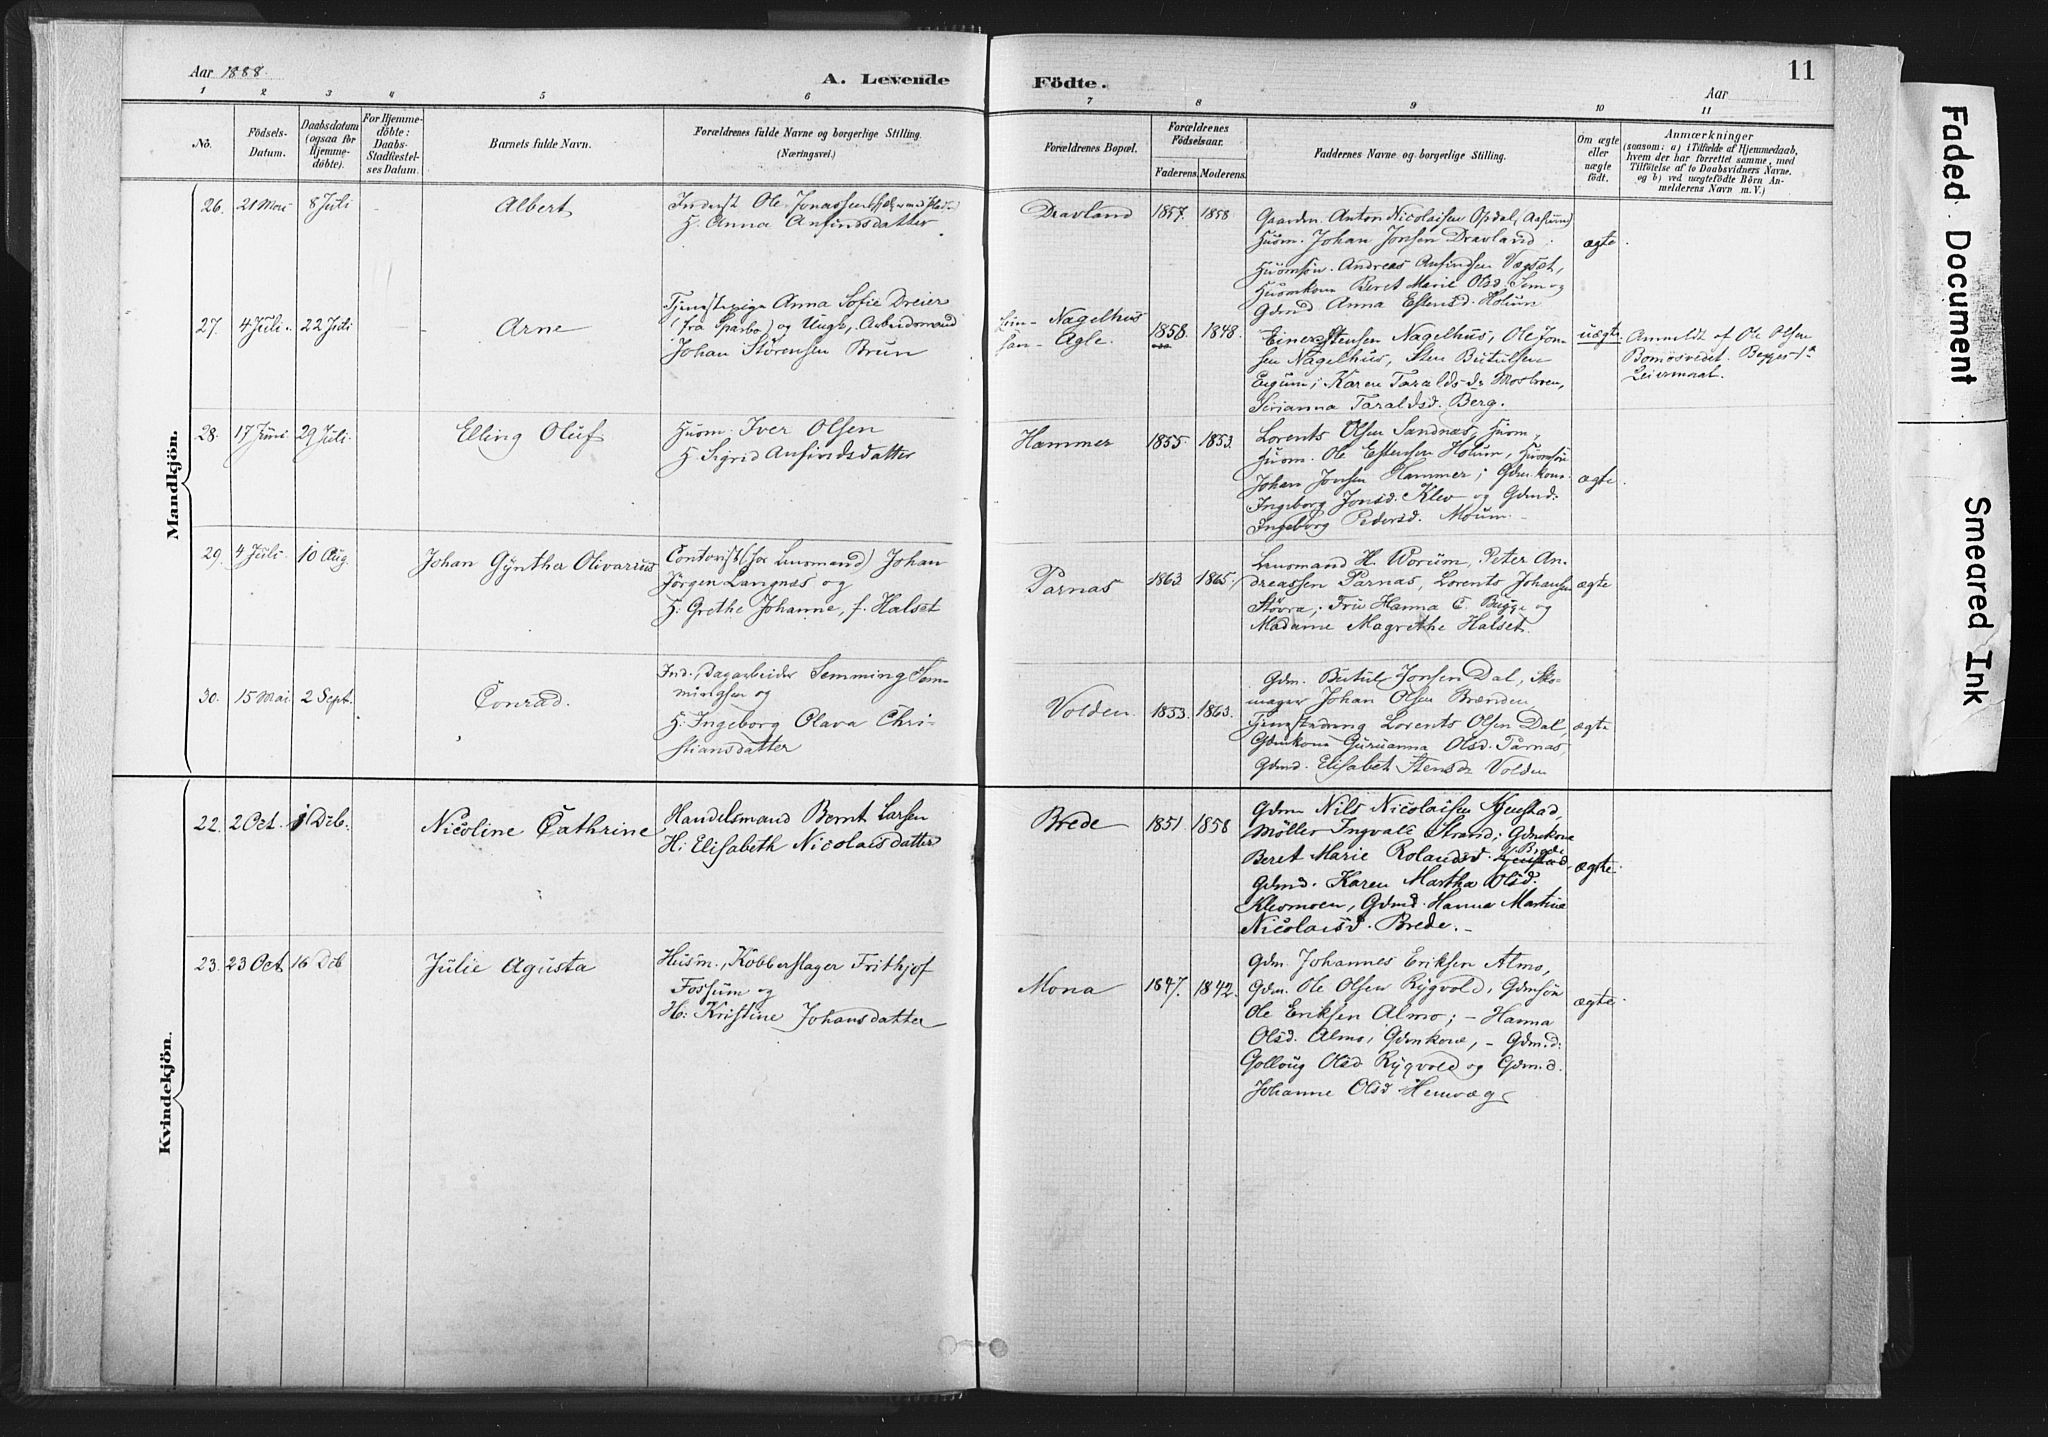 Aar 1888.
A. Levende
Födte.
Aar
11
1 2 3 4 5 6 7 8 9 10 11
No.
Födsels-
Datum.
Daabsdatum
(ogsaa for
Hjemme-
döbte).
For Hjemme-
döbte:
Daabs-
Stadfæstel-
ses Datum.
Barnets fulde Navn.
Forældrenes fulde Navne og borgerlige Stilling.
(Næringsvei.)
Forældrenes Bopæl.
Forældrenes
Födselsaar.
Faderens. Moderens.
Faddernes Navne og borgerlige Stilling.
Om ægte
eller
uægte
födt.
Anmærkninger
(saasom: a) i Tilfælde af Hjemmedaab,
hvem der har forrettet samme, med
Tilföielse af to Daabsvidners Navne.
og b) ved uægtefödte Börn An-
melderens Navn m. V.)
Mandkjön.
26. 21 Mai 8 Juli
Albert
Inderst Ole Jonassen
H. Anna Anfindsdatter
Dravland 1857. 1858
Gaardm. Anton Nicolaisen Opdal, (Aasum)
Husm. Johan Jonsen Dravland.
Husmsön. Andreas Anfindsen Vægset,
Husmkone Beret Marie Olsd. Sem og
Gdmd Anna Estensd. Holum
ægte.
27. 4 Juli. 22 Juli
Arne
Tjenestepige Anna Sofie Dreier
(fra Sparbo) og Ungk. Arbeidsmand
Johan Störensen Brun
Nagelhus
Agle. 1858. 1848.
Einer Stensen Nagelhus, Ole Jon-
sen Nagelhus, Sten Butulsen
Ergum; Karen Taralds-dr Mostuen,
Serianna Taraldsd. Berg.
uægte.
Anmeldt af Ole Olsen
Bomosvedet. Begges 1ste
Leiermaal.
28. 17 Juni 29 Juli.
Elling Oluf
Husm. Iver Olsen
H. Sigrid Anfindsdatter
Hammer 1855. 1853.
Lorents Olsen Sandnæs, Husm,
Husm. Ole Estensen Holum, Husmsön
Johan Jonsen Hammer; Gdm.kone
Ingeborg Jonsd. Klev og Gdmd.
Ingeborg Pedersd. Moum.
ægte.
29. 4 Juli. 10 Aug.
Johan Gÿnther Olivarius
Contorist (for Lensmand) Johan
Jörgen Langnæs og
H. Grethe Johanne, f. Halset
Parnas 1863 1865.
Lensmand H. Worum, Peter An-
dreassen Parnas, Lorents Johansen
Stövra; Fru Hanna C. Bugge og
Madame Magrethe Halset.
ægte
30. 15 Mai. 2 Sept.
Conrad.
Ind., Dagarbeider Semming Sem-
mingsen og
H. Ingeborg Olava Chri-
stiansdatter
Volden 1853. 1863.
Gdm. Butul Jonsen Dal, Sko-
mager Johan Olsen Brænden
Tjenestedreng Lorents Olsen Dal,
Gdmkone Gurianna Olsd. Parnas,
Gdmd. Elisabet Stensdr Volden
ægte
Kvindekjön.
22. 2 Oct. 1 Dcb.
Nicoline Cathrine
Handelsmand Bernt Larsen
H: Elisabeth Nicolaisdatter
Brede 1851. 1858
Gdm Nils Nicolaisen Hjenstad,
Möller Ingvald Strand; Gdmkone
Beret Marie Rolandsd. Brede
Gdmd. Karen Martha Olsd.
Klevmoen, Gdmd. Hanna Martine
Nicolaisd. Brede.
ægte
23. 23 Oct. 16 Dcb
Julie Agusta
Husm., Kobberslager Frithjof
Fossum og
H: Kristine Johansdatter
Mona 1847. 1842.
Gdm. Johannes Eriksen Almo,
Gdm. Ole Olsen Rÿgvold, Gdmsön
Ole Eriksen Almo; - Hanna
Olsd. Almo, Gdmkone, - Gdm.d:
Gollaug Olsd Rÿgvold og Gdm.d.
Johanne Olsd Hemvæg
ægte
Faded Document
Smeared Ink